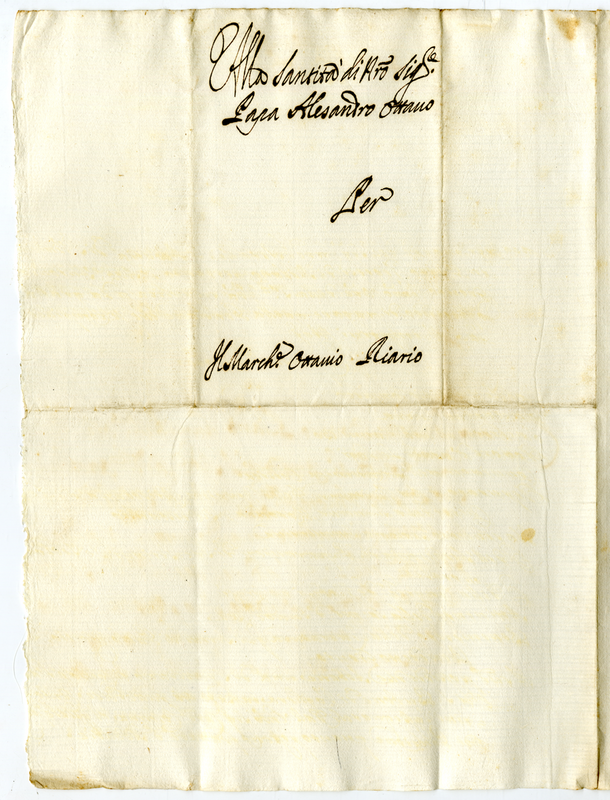 Alla Santità di Nro Sigre
Papa Alesandro Ottauo
Per
Il Marche Ottauio Riario